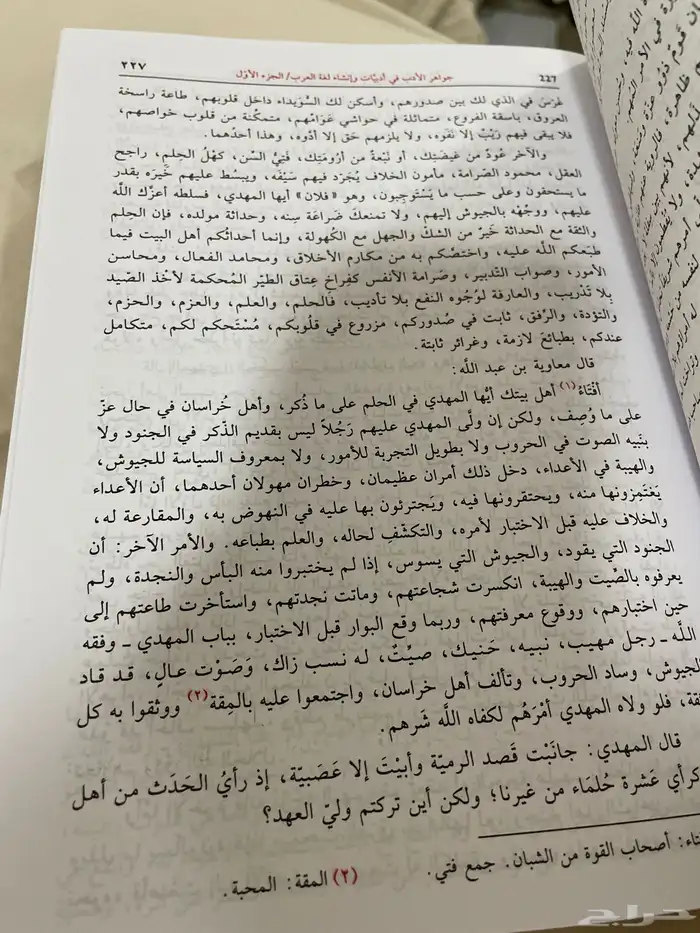 227 جواهر الأدب في أدبيّات وإنشاء لغة العرب/ الجزء الأوّل ٢٢٧
غرَسَ في الذي لك بين صدورهم، وأسكن لك السُّويداء داخل قلوبهم، طاعة راسخة
العروق، باسقة الفروع، متماثلة في حواشي عَوَامِّهم، متمكّنة من قلوب خواصهم،
فلا يبقى فيهم رَيْبٌ إلا نَفَوه، ولا يلزمهم حَق إلا أدّوه، وهذا أحدُهما.
والآخر عُودٌ من غَيضَتِك، أو نَبْعةٌ من أرُومَتِك، فَتِيُّ السِّن، كهْلُ الحِلم، راجح
العقل، محمود الصَّرامة، مأمون الخلاف يُجَرّد فيهم سَيْفَه، ويبسُط عليهم خَيرَه بقدر
ما يستحقون وعلى حسب ما يَسْتَوجِبون، وهو «فلان» أيها المهدي، فسلطه أعزّكَ اللَّه
عليهم، ووجّهْه بالجيوش إليهم، ولا تمنعكَ ضَراعَة سِنه، وحداثة مولده، فإن الحِلم
والثقة مع الحداثة خَيرٌ من الشكّ والجهل مع الكُهولة، وإنما أحداثُكم أهل البيت فيما
طبَعكم اللَّه عليه، واختصَّكم به من مكارم الأخلاق، ومحامد الفعال، ومحاسن
الأمور، وصواب التَّدبير، وصَرامة الأنفس كفِراخ عِتاق الطيْر المُحكمة لأخْذ الصَّيد
بِلا تَدْريب، والعارفة لوُجُوه النفع بلا تأديب، فالحلم، والعلم، والعزم، والحزم،
والتؤدة، والرِّفق، ثابت في صُدوركم، مزروع في قلُوبكم، مُسْتَحكم لكم، متكامل
عندكم، بطبائعَ لازمة، وغرائز ثابتة.
قال معاوية بن عبد اللَّه:
أفْتَاءُ (١) أهل بيتك أيُّها المهدي في الحلم على ما ذُكر، وأهل خُراسان في حال عزّ
على ما وُصِف، ولكن إن ولَّى المهدي عليهم رَجُلاً ليس بقديم الذِّكر في الجنود ولا
بنَبيه الصوت في الحروب ولا بطويل التجربة للأمور، ولا بمعروف السياسة للجيوش،
والهيبة في الأعداء، دخل ذلك أمران عظيمان، وخطران مهولان أحدهما، أن الأعداء
يَغتَمِزونها منه، ويحتقرونها فيه، ويَجترئون بها عليه في النهوض به، والمقارعة له،
والخلاف عليه قبل الاختبار لأمره، والتكشّف لحاله، والعلم بطباعه. والأمر الآخر: أن
الجنود التي يقود، والجيوش التي يسوس، إذا لم يختبروا منه البأس والنجدة، ولم
يعرفوه بالصِّيت والهيبة، انكسرت شجاعتهم، وماتت نجدتهم، واستأخرت طاعتهم إلى
حين اختبارهم، ووقوع معرفتهم، وربما وقع البوار قبل الاختبار، بباب المهدي ـ وفقه
اللَّه ـ رجل مهيب، نبيه، حَنيك، صيِّتٌ، له نسب زاك، وَصَوْت عالٍ، قد قاد
الجيوش، وساد الحروب، وتألف أهل خراسان، واجتمعوا عليه بالمِقة (٢) ووثقوا به كل
الثقة، فلو ولاه المهدي أمْرَهُم لكفاه اللَّه شَرهم.
قال المهدي: جانَبْت قَصد الرميّة وأبيْتَ إلا عَصَبيّة، إذ رأيُ الحَدَث من أهل
كرأي عَشرة حُلمَاء من غيرنا؛ ولكن أين تركتم وليّ العهد؟
أصحاب القوة من الشبان. جمع فتي. (٢) المقة: المحبة.
حراج